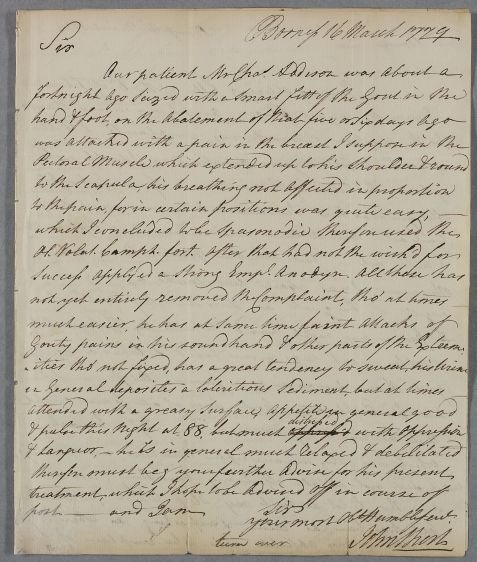 Borness 16 March 1779
Sir
Our patient Mr Chas. Addison was about a
fortnight ago seized with a smart fitt of the Gout in the
hand & foot, on the Abatement of that five or six days ago
was attacked with a pain in the breast I suppose in the
Pectoral Muscle which extended up to his shoulder & round
to the Scapula, his breathing not affected in proportion
to the pain, for in certain positions was quite easy,
which I concluded to be spasmodic therefore used the
Ol. Volat. Camph. fort. after that had not the wish'd for
success applyed a strong Empl. Anodyn. all these has
not yet entirely removed the Complaint, tho' at times
much easier, he has at same time faint attacks of
Gouty pains in his sound hand & other parts of the Extrem
ities tho' not fixed, has a great tendency to sweat, his urine
in General deposites a lateritious Sediment but at times
attended with a greasy surface, appetite in general good
& pulse this Night at 88, but much distressed with oppression
& Languor - he is in general much relaxed & debilitated
therefore must beg your further advise for his present
treatment, which I hope to be advised off in course of
post - and I am Sir
your most Obt Humble Servt
turn over John